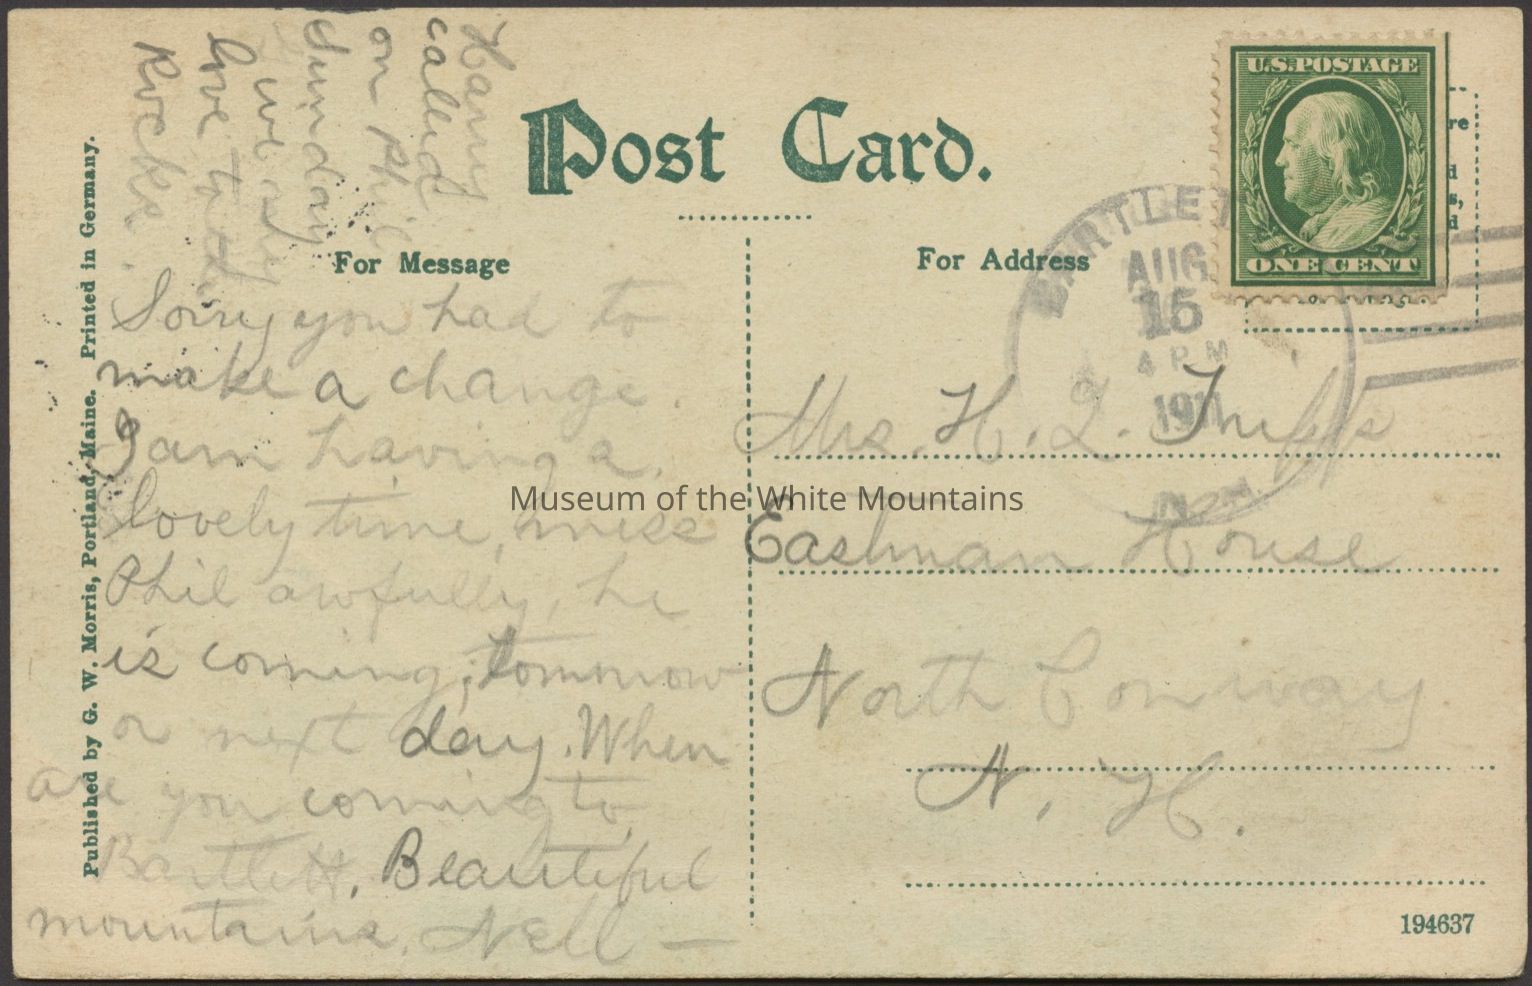 Harry
called
on Phil
Sunday
love to
Rocks.
Post Card.
For Message
For Address
U.S. POSTAGE
ONE CENT
BARTLETT
AUG
15
4 PM
1911
N.H.
Sorry you had to
make a change.
I am having a
lovely time, miss
Phil awfully, he
is coming tomorrow
or next day. When
are you coming to
Bartlett. Beautiful
mountains. Nell —
Mrs. H. L. Tripp
Eastman House
North Conway
N. H.
Published by G. W. Morris, Portland, Maine. Printed in Germany.
194637
Museum of the White Mountains